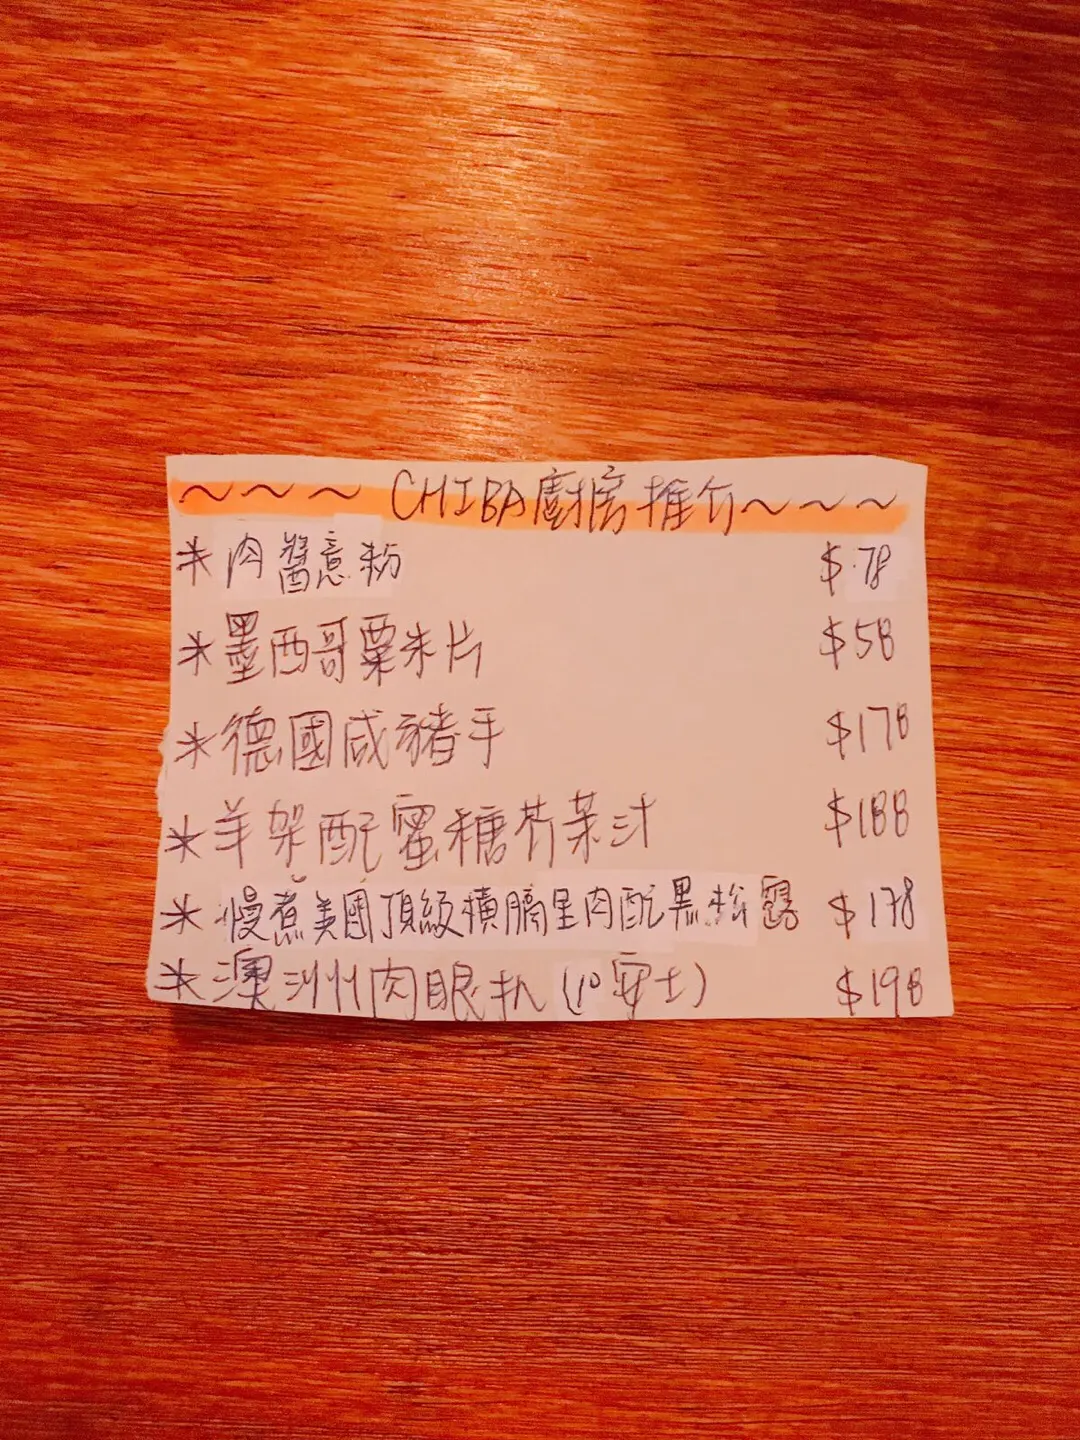 ~~~ CHIBA廚房推介~~~
*肉醬意粉 $78
*墨西哥粟米片 $58
*德國咸豬手 $178
*羊架配蜜糖芥茉汁 $188
*慢煮美國頂級橫膈肉配黑松露 $178
*澳洲肉眼扒 (10安士) $198